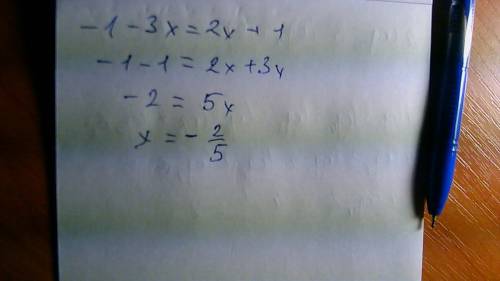 -1-3x=2x+1
-1-1=2x+3x
-2=5x
x=-2/5